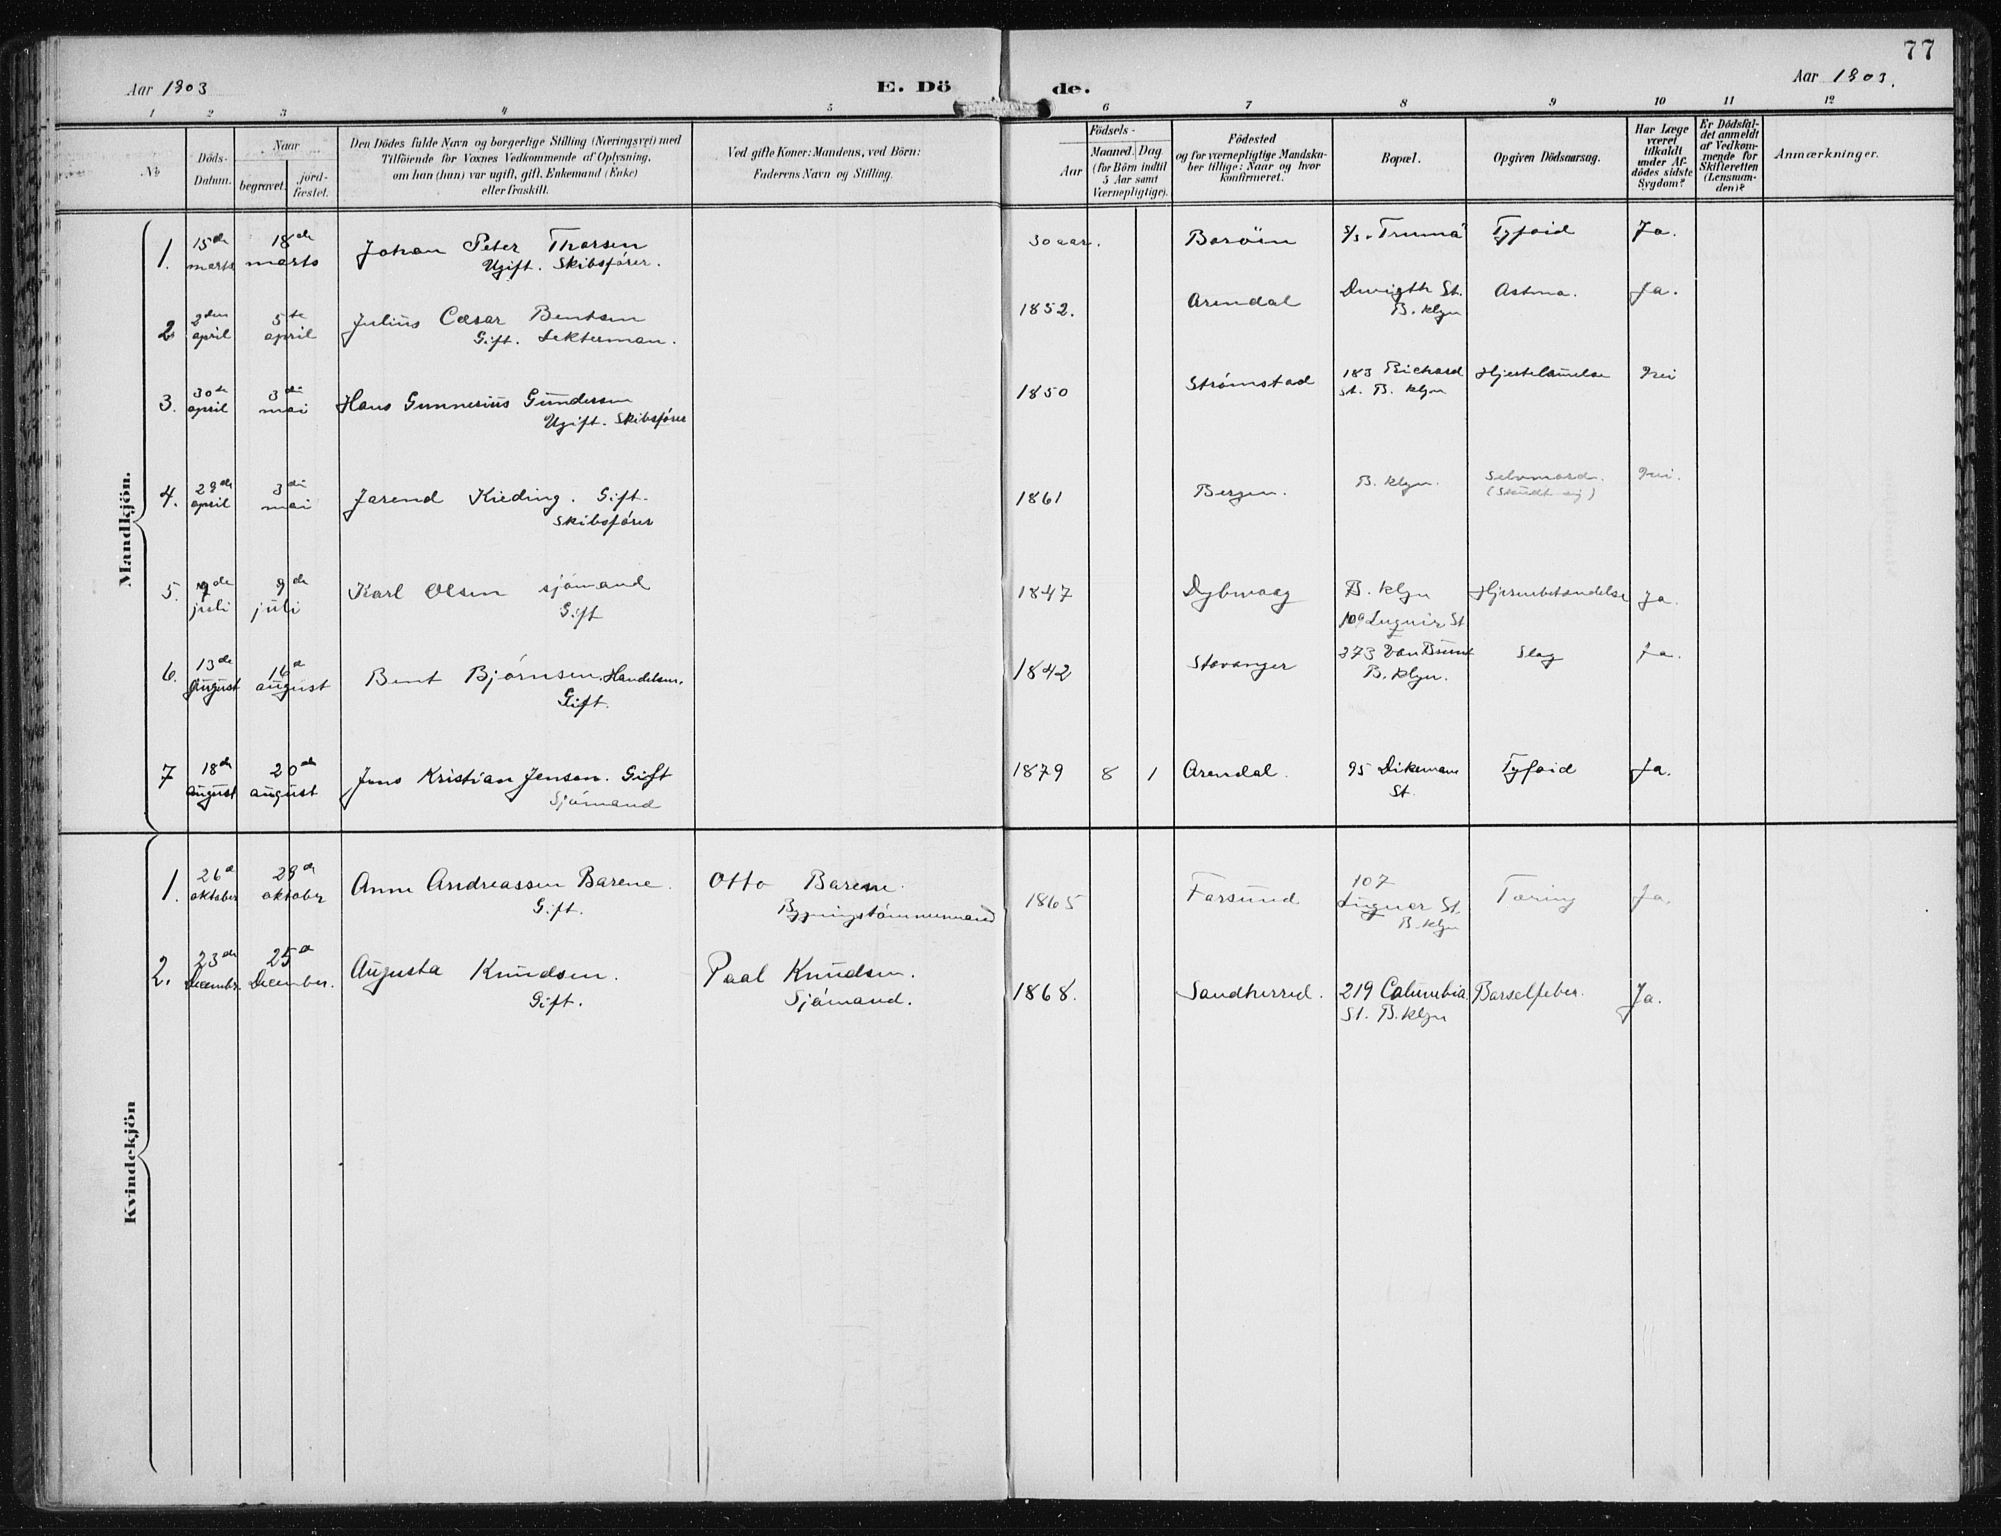 77
Aar 1903
E. Dö
de.
Aar 1903.
1 2 3 4 5 6 7 8 9 10 11 12
No
Döds-
Datum.
Naar
begravet.
jord-
fæstet.
Den Dödes fulde Navn og borgerlige Stilling (Næringsvei) med
Tilföiende for Voxnes Vedkommende af Oplysning,
om han (hun) var ugift, gift, Enkemand (Enke)
eller fraskilt.
Ved gifte Koner: Mandens, ved Börn:
Faderens Navn og Stilling.
Födsels-
Aar
Maaned. Dag
(for Börn indtil
5 Aar samt
Værnepligtige).
Födested
og for værnepligtige Mandska-
ber tillige: Naar og hvor
konfirmeret.
Bopæl.
Opgiven Dödsaarsag.
Har Læge
været
tilkaldt
under Af-
dödes sidste
Sygdom?
Er Dödsfal-
det anmeldt
af Vedkom-
mende for
Skifteretten
(Lensman-
den)?
Anmærkninger.
Mandkjön.
1. 15de marts 18de marts Johan Peter Thorsen
Ugift. Skibsfører.
30 aar. Borøin S/s. Ty­foid Ja.
2 2den april 5te april Julius Cæsar Bentsen
Gift. Lekterman.
1852. Arendal Dwigth St.
B. klyn
Astma. Ja.
3. 30te april 3di mai Hans Gunnerius Gundersen
Ugift. Skibsfører
1850 Strømstad 183 Richard
St. B. klyn
Hjertelamelse Nei
4. 29de april 3di mai Jarend Kieding. Gift.
Skibsfører
1861 Bergen. B. klyn. Selvmord.
(Skudt sig)
Nei.
5. 7de juli 9de juli Karl Olsen sjömand
Gift
1847 Dybvaag B. klyn
109 Luquir St
Hjernebetændelse Ja.
6. 13de August 16d august Bent Bjørnsen. Handelsm.
Gift.
1842 Stavanger 273 Van Brunt
B. klyn.
Slag Ja.
7 18de august 20de august Jens Kristian Jensen. Gift
Sjömand
1879 8 1 Arendal. 95 Dikeman
St.
Tyfoid Ja.
Kvindekjön
1. 26d oktober 29de oktober Anne Andreassen Barene.
Gift.
Otto Barene.
Bygningstömmermand
1865 Farsund 107
Luquer St.
B. klyn
Tæring Ja.
2. 23de December. 25d December. Augusta Knudsen.
Gift.
Paal Knudsen.
Sjömand.
1868. Sandherred. 219 Columbia
St. B. klyn
Barselfeber. Ja.